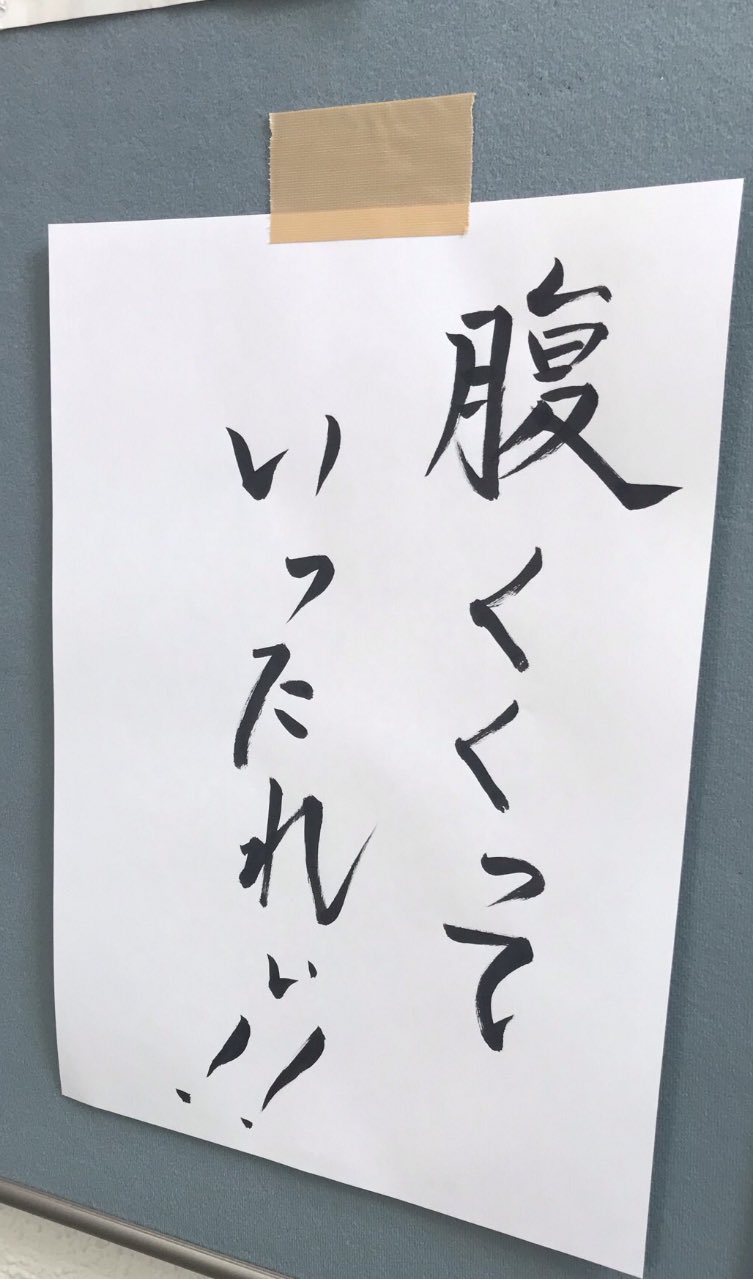 腹くくって
いったれぃ!!